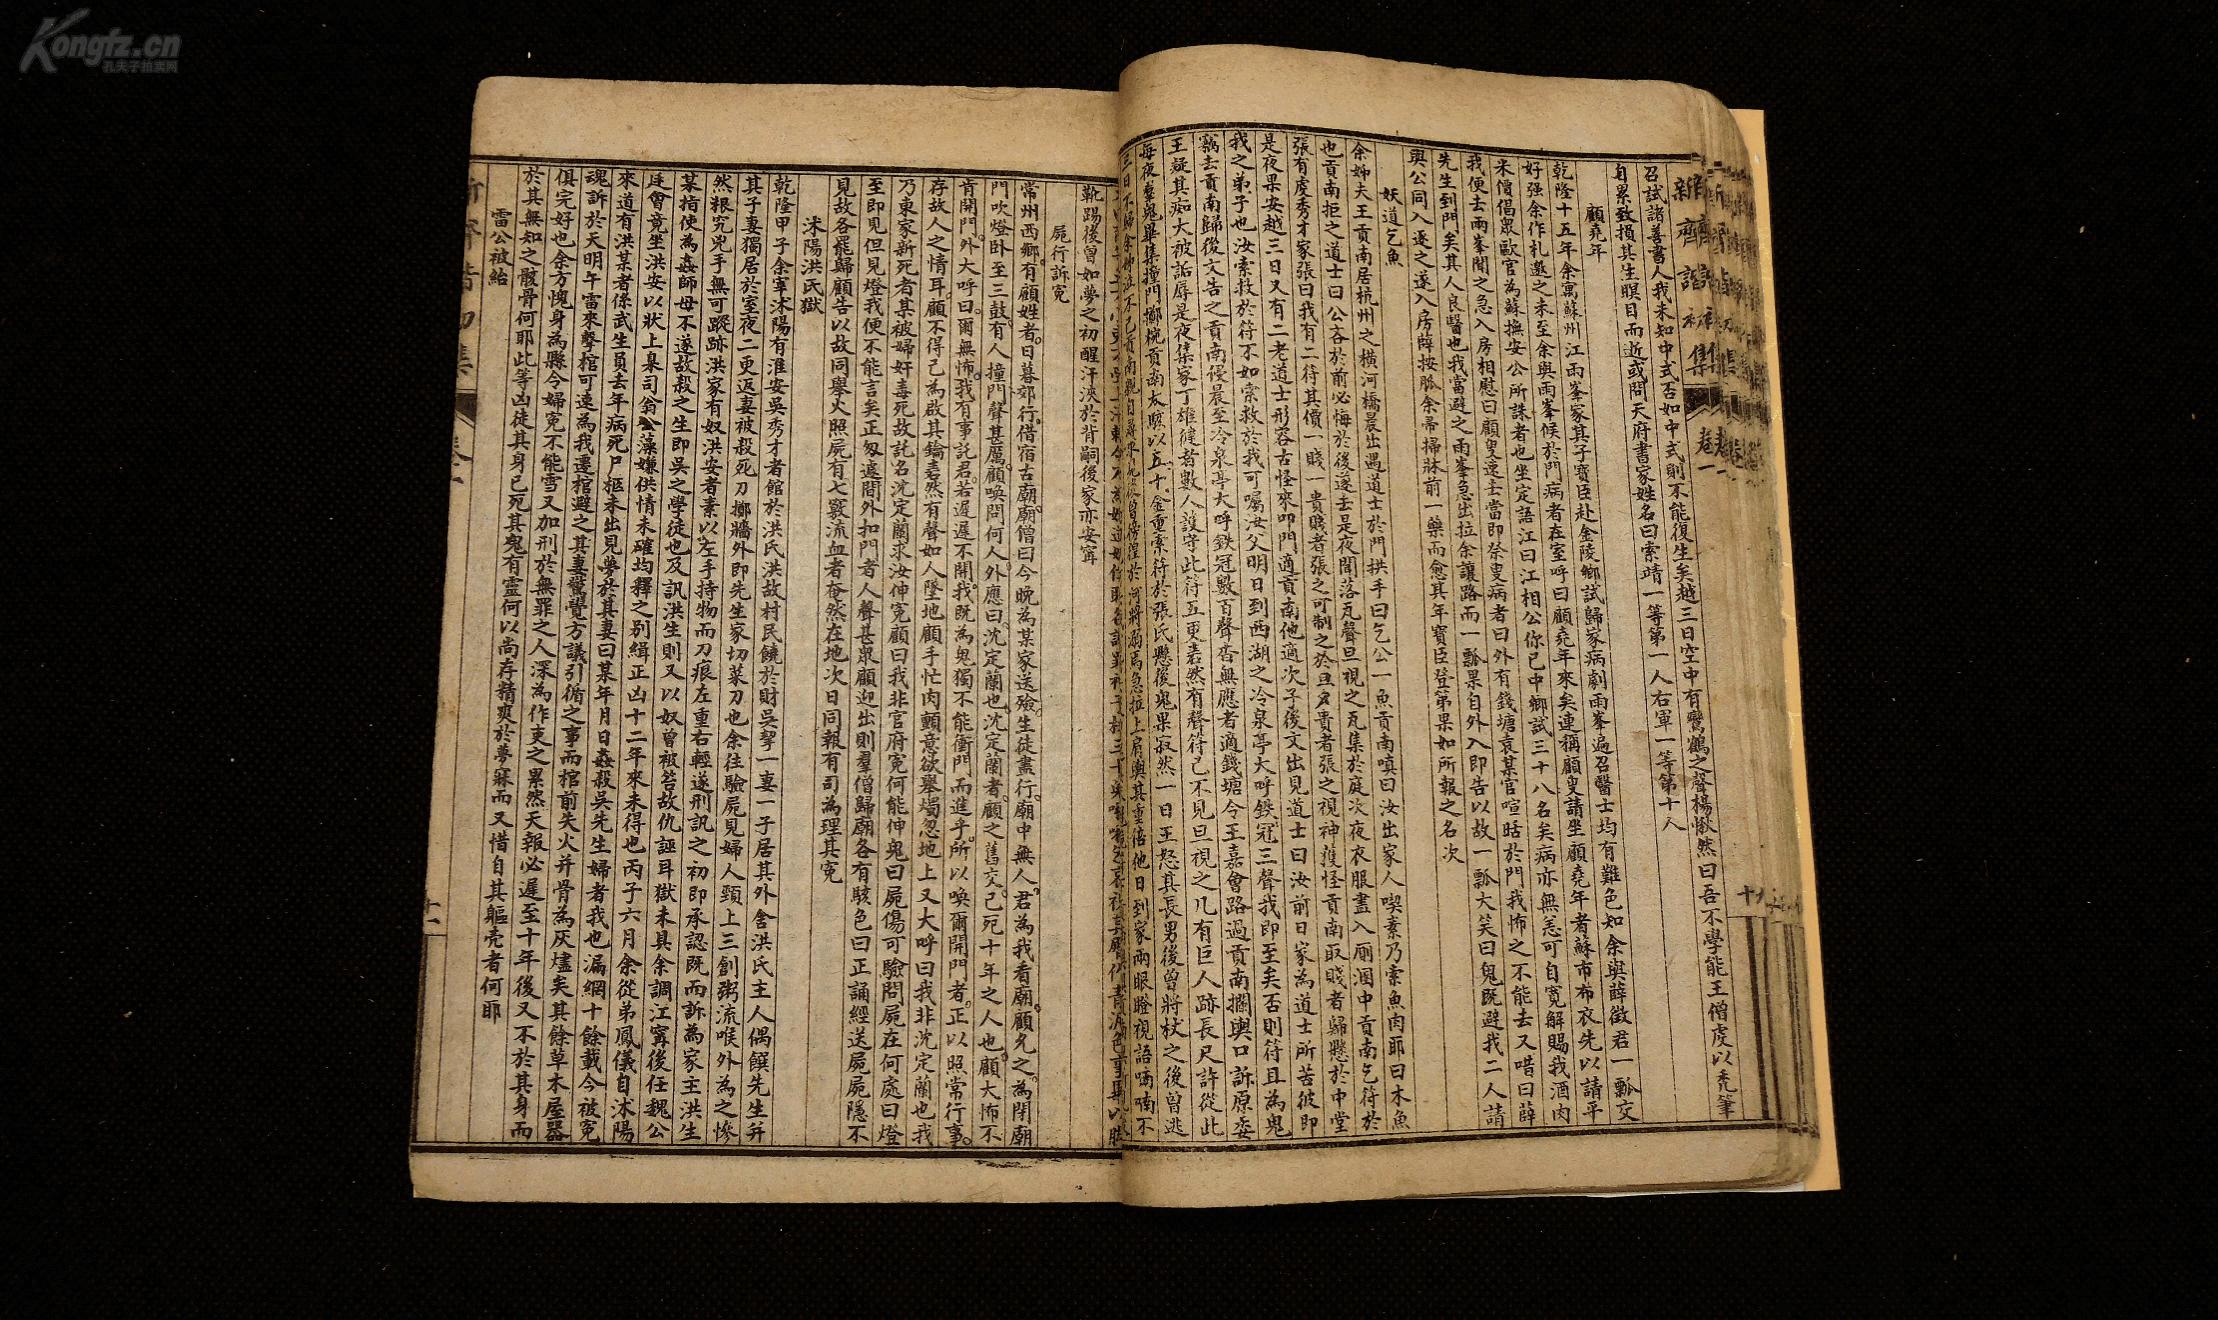 Kongfz.cn
孔夫子拍卖网
新齊諧初集
卷一
十
召試諸善書人我未知中式否如中式則不能復生矣越三日空中有鸞鶴之聲楊愀然曰吾不學能王僧虔以禿筆
自累致損其生瞑目而逝或問天府書家姓名曰索靖一等第一人右軍一等第十人
顧堯年
乾隆十五年余寓蘇州江雨峯家其子寶臣赴金陵鄉試歸家病劇雨峯遍召醫士均有難色知余與薛徵君一瓢交
好强余作札邀之未至余與雨峯候於門病者在室呼曰顧堯年來矣連稱顧叟請坐顧堯年者蘇市布衣先以請平
米價倡眾毆官為蘇撫安公所誅者也坐定語江曰江相公你已中鄉試三十八名矣病亦無恙可自寬解賜我酒肉
我便去雨峯聞之急入房相慰曰顧叟速去當即祭叟病者曰外有錢塘袁某官喧聒於門我怖之不能去又唶曰薛
先生到門矣其人良醫也我當避之雨峯急出拉余讓路而一瓢果自外入即告以故一瓢大笑曰鬼既避我二人請
與公同入逐之遂入房薛按脈余帚掃牀前一藥而愈其年寶臣登第果如所報之名次
妖道乞魚
余姊夫王貢南居杭州之橫河橋晨出遇道士於門拱手曰乞公一魚貢南嗔曰汝出家人喫素乃索魚肉耶曰木魚
也貢南拒之道士曰公吝於前必悔於後遂去是夜聞落瓦聲旦視之瓦集於庭次夜衣服盡入厠溷中貢南乞符於
張有虔秀才家張曰我有二符其價一賤一貴賤者張之可制之於旦夕貴者張之視神護怪貢南取賤者歸懸於中堂
是夜果安越三日又有二老道士形容古怪來叩門適貢南他適次子後文出見道士曰汝前日家為道士所苦彼即
我之弟子也汝索救於符不如索救於我可囑汝父明日到西湖之冷泉亭大呼鐵冠三聲我即至矣否則符且為鬼
竊去貢南歸後文告之貢南侵晨至冷泉亭大呼鉄冠數百聲杳無應者適錢塘令王嘉會路過貢南攔輿口訴原委
王疑其痴大被詬辱是夜集家丁雄健者數人護守此符五更砉然有聲符已不見旦視之几有巨人跡長尺許從此
每夜羣鬼畢集撞門擲椀貢南大駭以五十金重索符於張氏懸後鬼果寂然一日王怒其長男後曾將杖之後曾逃
靴踢後曾如夢之初醒汗浹於背嗣後家亦安寧
屍行訴寃
常州西鄉有顧姓者日暮郊行借宿古廟廟僧曰今晚為某家送殮生徒盡行廟中無人君為我看廟顧允之為閉廟
門吹燈卧至三鼓有人撞門聲甚厲顧喚問何人外應曰沈定蘭也沈定蘭者顧之舊交已死十年之人也顧大怖不
肯開門外大呼曰爾無怖我有事託君若遲遲不開我既為鬼獨不能衝門而進乎所以喚爾開門者正以照常行事
存故人之情耳顧不得已為啟其鑰砉然有聲如人墜地顧手忙肉顫意欲舉燭忽地上又大呼曰我非沈定蘭也我
乃東家新死者某被婦奸毒死故託名沈定蘭求汝伸寃顧曰我非官府寃何能伸鬼曰屍傷可驗問屍在何處曰燈
至即見但見燈我便不能言矣正匆遽間外扣門者人聲甚眾顧迎出則羣僧歸廟各有駭色曰正誦經送屍屍隱不
見故各罷歸顧告以故同舉火照屍有七竅流血者奄然在地次日同報有司為理其寃
沭陽洪氏獄
乾隆甲子余宰沭陽有淮安吳秀才者館於洪氏洪故村民饒於財吳挈一妻一子居其外舍洪氏主人偶饌先生并
其子妻獨居於室夜二更返妻被殺死刀擲牆外即先生家切菜刀也余往驗屍見婦人頸上三創粥流喉外為之慘
然根究兇手無可蹤跡洪家有奴洪安者素以左手持物而刀痕左重右輕遂刑訊之初即承認既而訴為家主洪生
某指使為姦師母不遂故殺之生即吳之學徒也及訊洪生則又以奴曾被笞故仇誣耳獄未具余調江寧後任魏公
廷會竟坐洪安以狀上臬司翁公藻嫌供情未確均釋之別緝正凶十二年來未得也丙子六月余從弟鳳儀自沭陽
來道有洪某者係武生員去年病死尸柩未出見夢於其妻曰某年月日姦殺吳先生婦者我也漏網十餘載今被寃
魂訴於天明午雷來擊棺可速為我遷棺避之其妻驚覺方議引䡮之事而棺前失火并骨為灰燼矣其餘草木屋器
俱完好也余方愧身為縣令婦寃不能雪又加刑於無罪之人深為作吏之累然天報必遲至十年後又不於其身而
於其無知之骸骨何耶此等凶徒其身已死其鬼有靈何以尚存精爽於夢寐而又惜自其軀壳者何耶
雷公被紿
新齊諧初集
卷二
十一